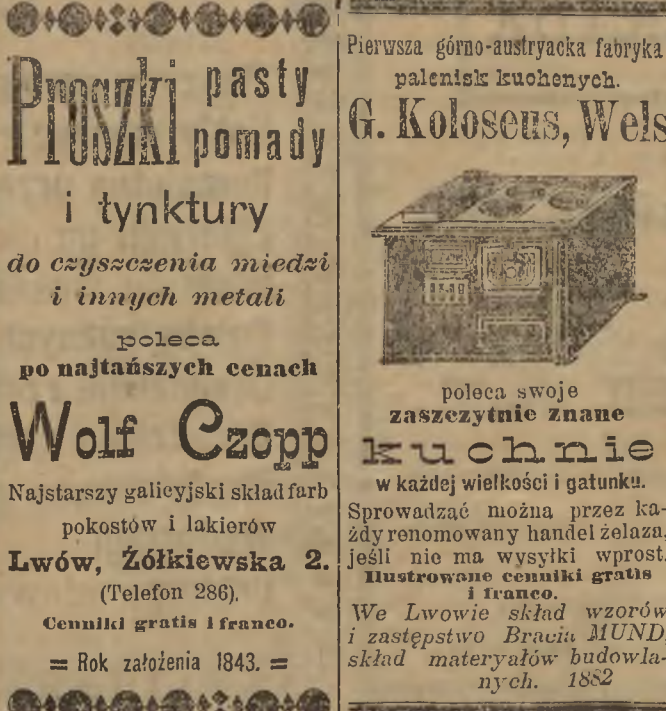 Proszki pasty
pomady
i tynktury
do czyszczenia miedzi
i innych metali
poleca
po najtańszych cenach
Wolf Czopp
Najstarszy galicyjski skład farb
pokostów i lakierów
Lwów, Żółkiewska 2.
(Telefon 286).
Cenniki gratis i franco.
= Rok założenia 1843. =
Pierwsza górno-austryacka fabryka
palenisk kuchenych.
G. Koloseus, Wels
poleca swoje
zaszczytnie znane
kuchnie
w każdej wielkości i gatunku.
Sprowadzać można przez ka-
żdy renomowany handel żelaza,
jeśli nie ma wysyłki wprost.
Ilustrowane cenniki gratis
i franco.
We Lwowie skład wzorów
i zastępstwo Bracia MUND,
skład materyałów budowla-
nych. 1882